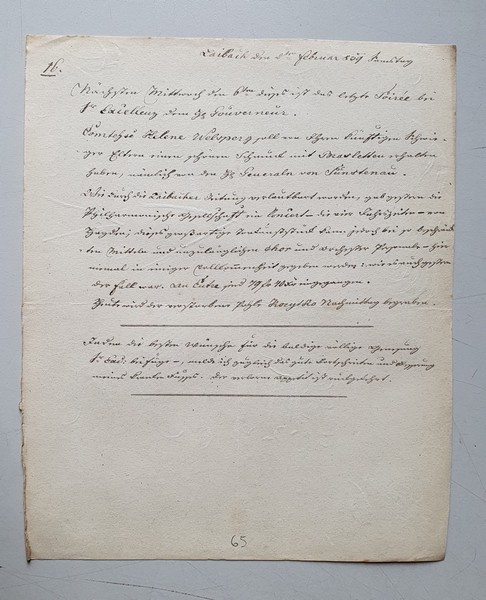 16.
Laibach den 2ten Februar 859 Samstag
Nächsten Mittwoch den 6ten dieses ist das letzte Soirée bei
Sr Excellenz dem H: Gouverneur.
Comtesse Helene Welsperg soll von Ihren künftigen Schwie-
ger Eltern einen schönen Schmuck mit erhalten
haben, nämlich von den H: Generalen von Fürstenau.
Wie durch die Laibacher Zeitung verlautbart worden, gab gestern die
Philharmonische Gesellschaft in Concert die vier Jahrzeiten von
Hayden; dieses großartige kann jedoch bei so beschränk-
ten Mitteln und unzulänglichen Chor und Orchester Personale hier
niemal in einiger Vollkommenheit gegeben werden; wie es auch gestern
der Fall war. An sind 79 f eingegangen.
Heute wird der verstorbene Nachmittag begraben.
Indem die besten Wünsche für die baldige völlige Genesung
beifüge, melde ich zugleich das gute Fortschreiten und Besserung
meines kranken Fusses. Der verlorne Appetit ist rückgekehrt.
65